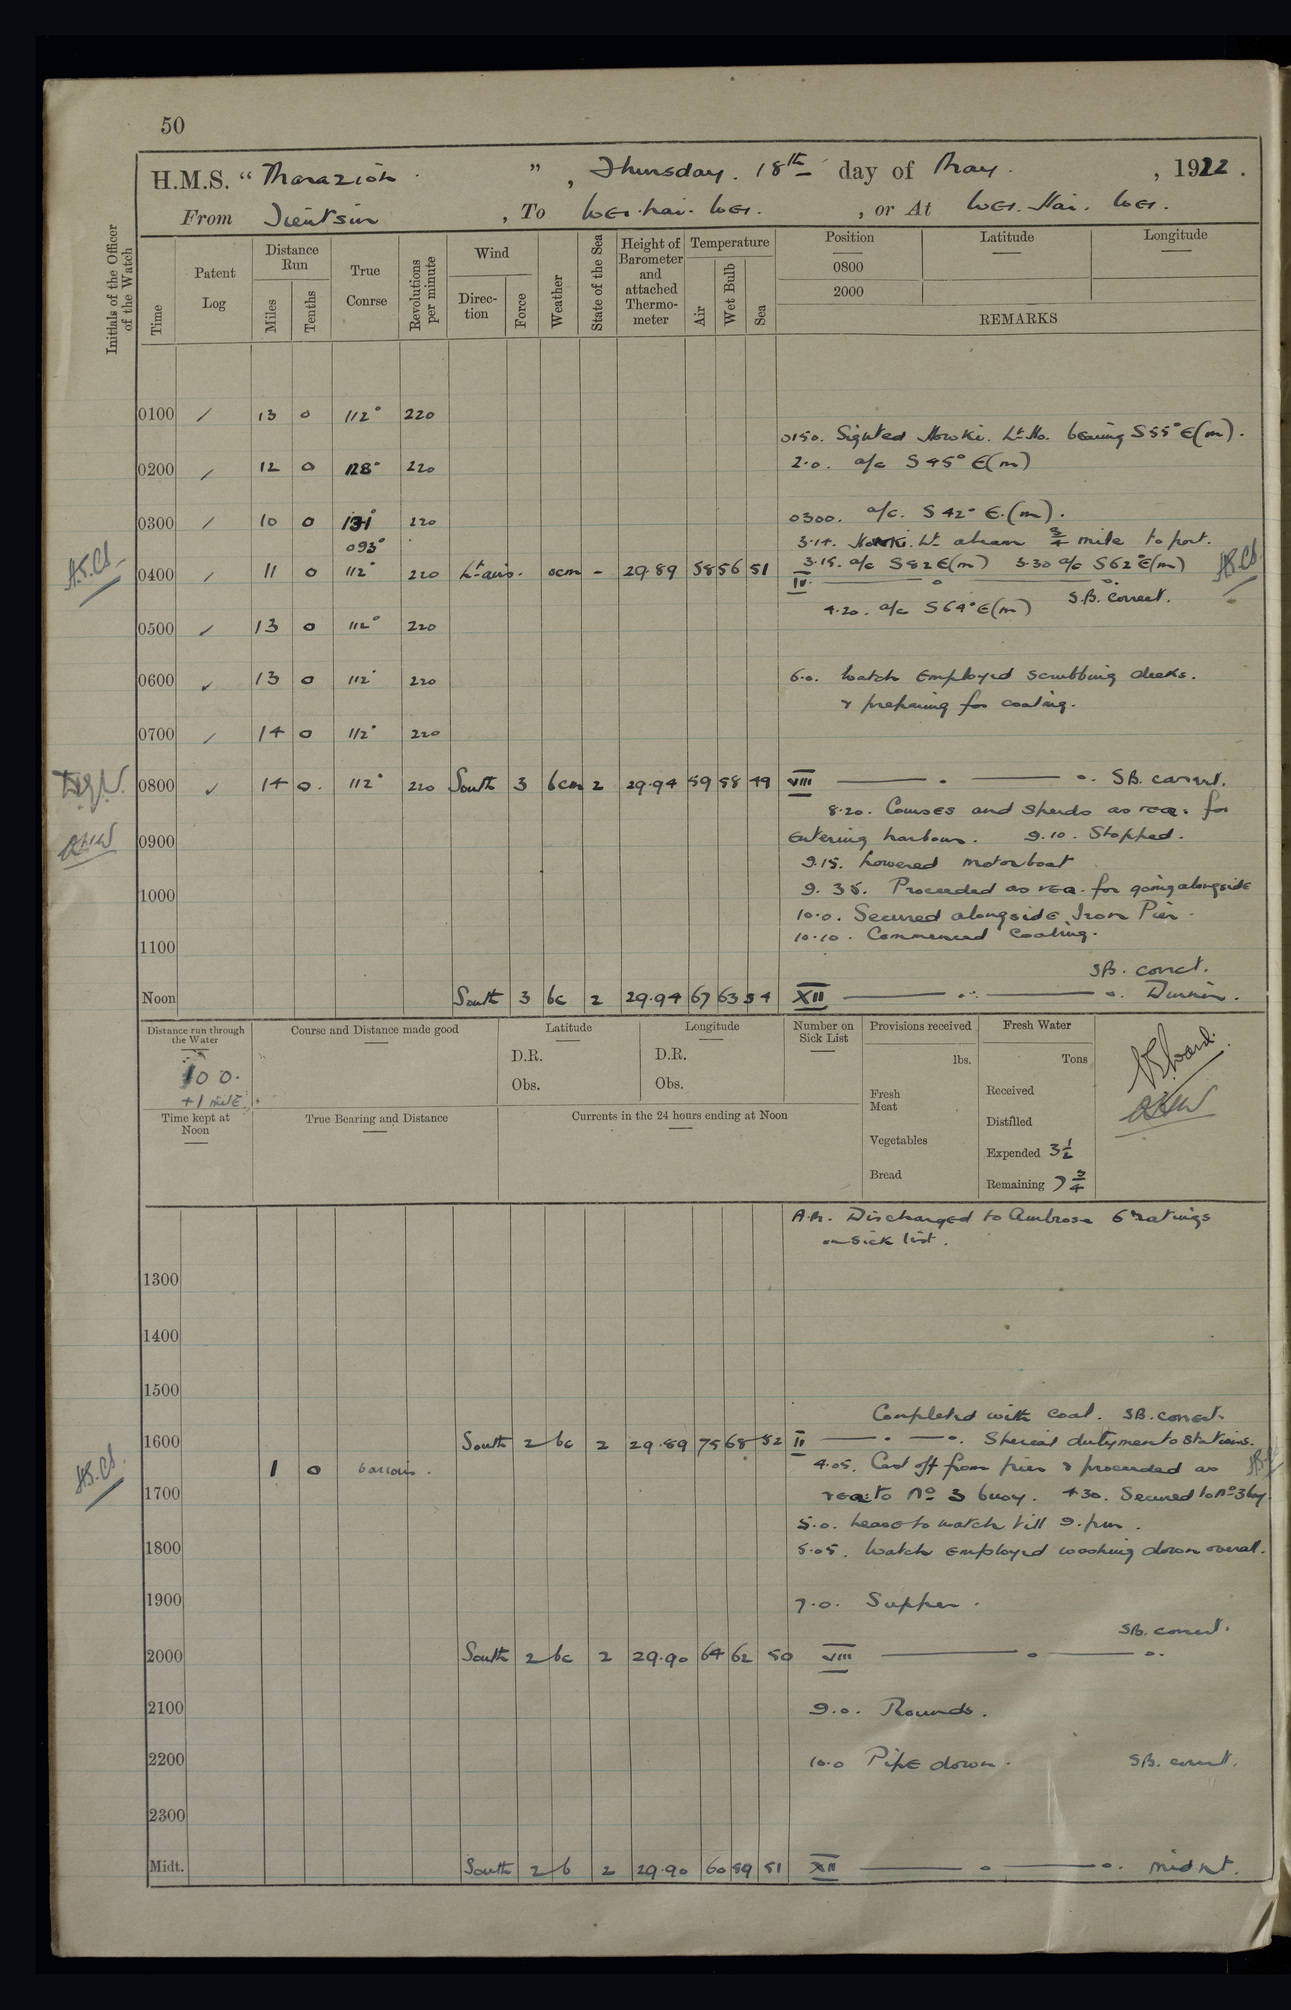 50
H.M.S. “ Marazion ” , Thursday. 18th day of May. , 1922 .
From Tientsin , To Wei. hai. Wei. , or At Wei. Hai. Wei.
Initials of the Officer of the Watch
Time
Patent Log
Distance Run
Miles
Tenths
True Course
Revolutions per minute
Wind
Direction
Force
Weather
State of the Sea
Height of Barometer and attached Thermometer
Temperature
Air
Wet Bulb
Sea
Position Latitude Longitude
0800
2000
REMARKS
0100 / 13 0 112° 220
0150. Sighted Howki. Lt. Ho. bearing S55°E(m).
0200 / 12 0 128° 220 2.0. a/c S45°E(m)
0300 / 10 0 131° 220 0300. a/c. S 42° E.(m).
093° 3.14. Howki. Lt abeam 3/4 mile to port.
0400 / 11 0 112° 220 Lt airs. ocm - 29.89 58 56 51 3.15. a/c S82E(m) 3.30 a/c S62°E(m)
IV. S.B. correct.
4.20. a/c S64°E(m)
0500 ✓ 13 0 112° 220
0600 ✓ 13 0 112° 220 6.0. Watch Employed scrubbing decks.
& preparing for coaling.
0700 / 14 0 112° 220
0800 ✓ 14 0. 112° 220 South 3 bcm 2 29.94 59 58 49 VIII S.B. correct.
8.20. Courses and speeds as req. for
0900 Entering harbour. 9.10. Stopped.
9.15. Lowered motorboat
1000 9.35. Proceeded as req. for going alongside
10.0. Secured alongside Iron Pier.
10.10. Commenced Coaling.
1100
S.B. correct.
Noon South 3 bc 2 29.94 67 63 54 XII Dinner.
Distance run through the Water
100.
+1 mile.
Course and Distance made good
Latitude
D.R.
Obs.
Longitude
D.R.
Obs.
Number on Sick List
Provisions received
lbs.
Fresh Meat
Vegetables
Bread
Fresh Water
Tons
Received
Distilled
Expended 3 1/2
Remaining 7 3/4
Time kept at Noon
True Bearing and Distance
Currents in the 24 hours ending at Noon
A.M. Discharged to Ambrose 6 ratings
on sick list.
1300
1400
1500
Completed with coal. S.B. correct.
1600 South 2 bc 2 29.89 75 68 52 Special dutymen to stations.
1 0 various. 4.05. Cast off from pier & proceeded as
1700 req: to No 3 buoy. 4.30. Secured to No 3 buoy.
5.0. Leave to watch till 9. pm.
1800 5.05. Watch employed washing down overall.
1900 7.0. Supper.
S.B. correct.
2000 South 2 bc 2 29.90 64 62 50 VIII
2100 9.0. Rounds.
2200 10.0 Pipe down. S.B. correct.
2300
Midt. South 2 b 2 29.90 60 59 51 XII midnt.